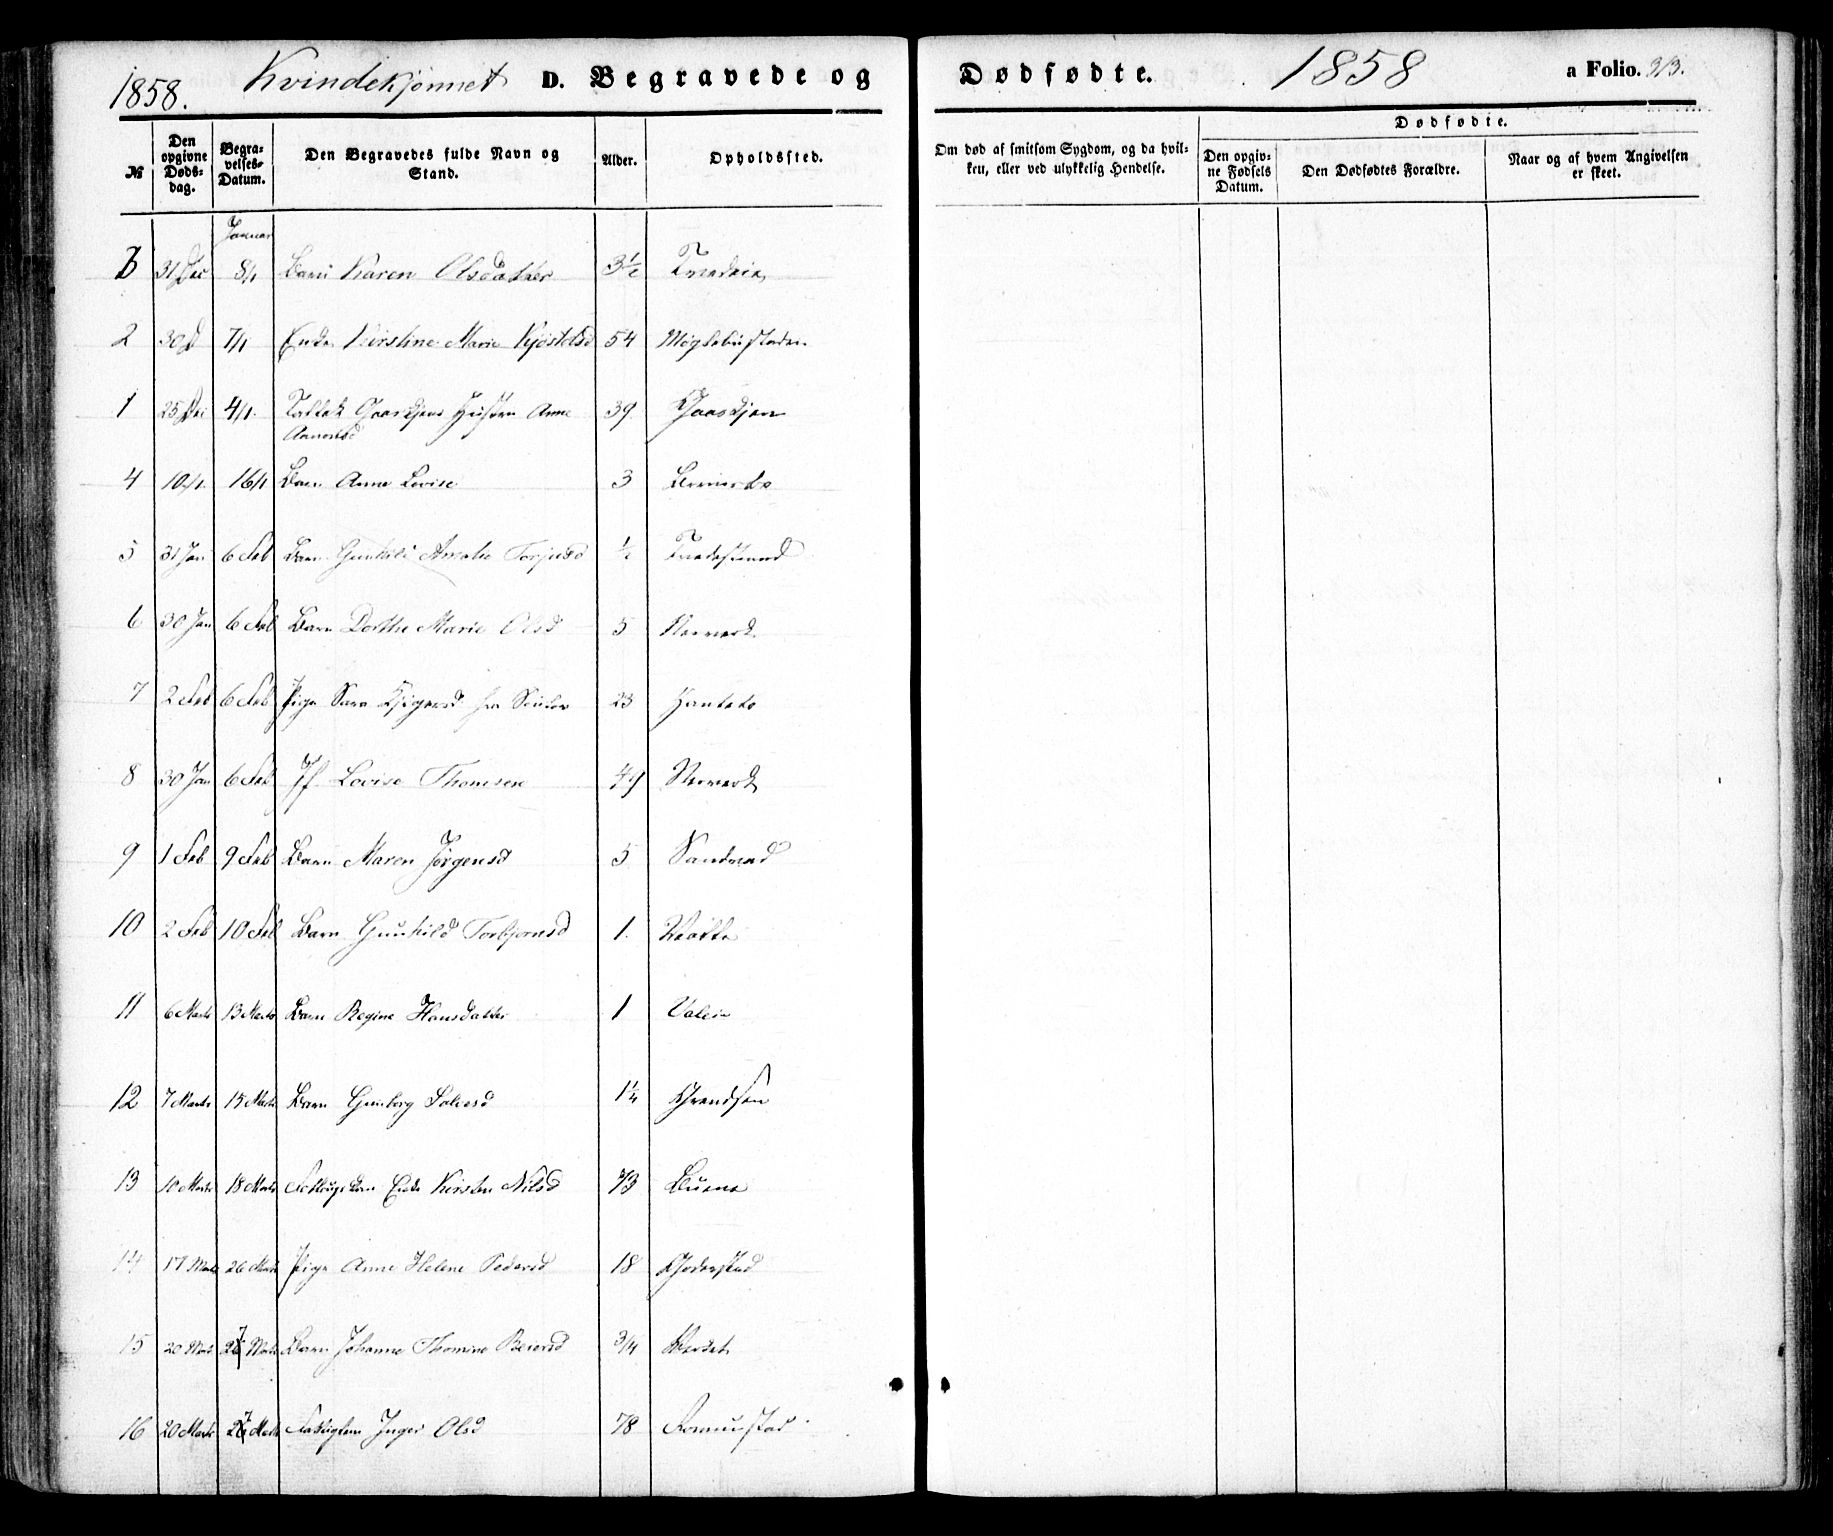 1858. Kvindekjønnet D. Begravede og Dødfødte. 1858 a Folio. 313.
№
Den opgivne Dødsdag.
Begravelses-Datum.
Den Begravedes fulde Navn og Stand.
Alder.
Opholdssted.
Om død af smitsom Sygdom, og da hvilken, eller ved ulykkelig Hendelse.
Dødfødte.
Den opgivne Fødsels Datum.
Den Dødfødtes Forældre.
Naar og af hvem Angivelsen er skeet.
Januar
3 31 Dec 8/1 Barn Karen Olsdatter 3½
2 30 D 7/1 Enke Kirstine Marie Kjøstelsd 54
1 25 Dec 4/1 Huustru Anne 39
4 10/1 16/1 Barn Anne Lovise 3
5 31 Jan 6 Feb Barn Gunhild Amalie Torjusd ½ Tvedestrand
6 30 Jan 6 Feb Barn Dorthe Marie Olsd 5 Næsverk
7 2 Feb 6 Feb Pige Sara 23 Hanteto
8 30 Jan 6 Feb Jf. Lovise Thomsen 49 Næsverk
9 1 Feb 9 Feb Barn Maren Jørgensd 5 Sandnæs
10 2 Feb 10 Feb Barn Gunhild Torbjørnsd 1
11 6 Marts 13 Marts Barn Regine Hansdatter 1 Valeie
12 7 Marts 15 Marts Barn Gunborg Salvesd 1¼
13 10 Marts 18 Marts Enke Kirsten Nilsd 73
14 17 Marts 26 Marts Pige Anne Helene Pedersd 18 Goderstad
15 20 Marts 27 Marts Barn Johanne Thomine Reiersd 3/4
16 20 Marts 27 Marts Inger Olsd 78